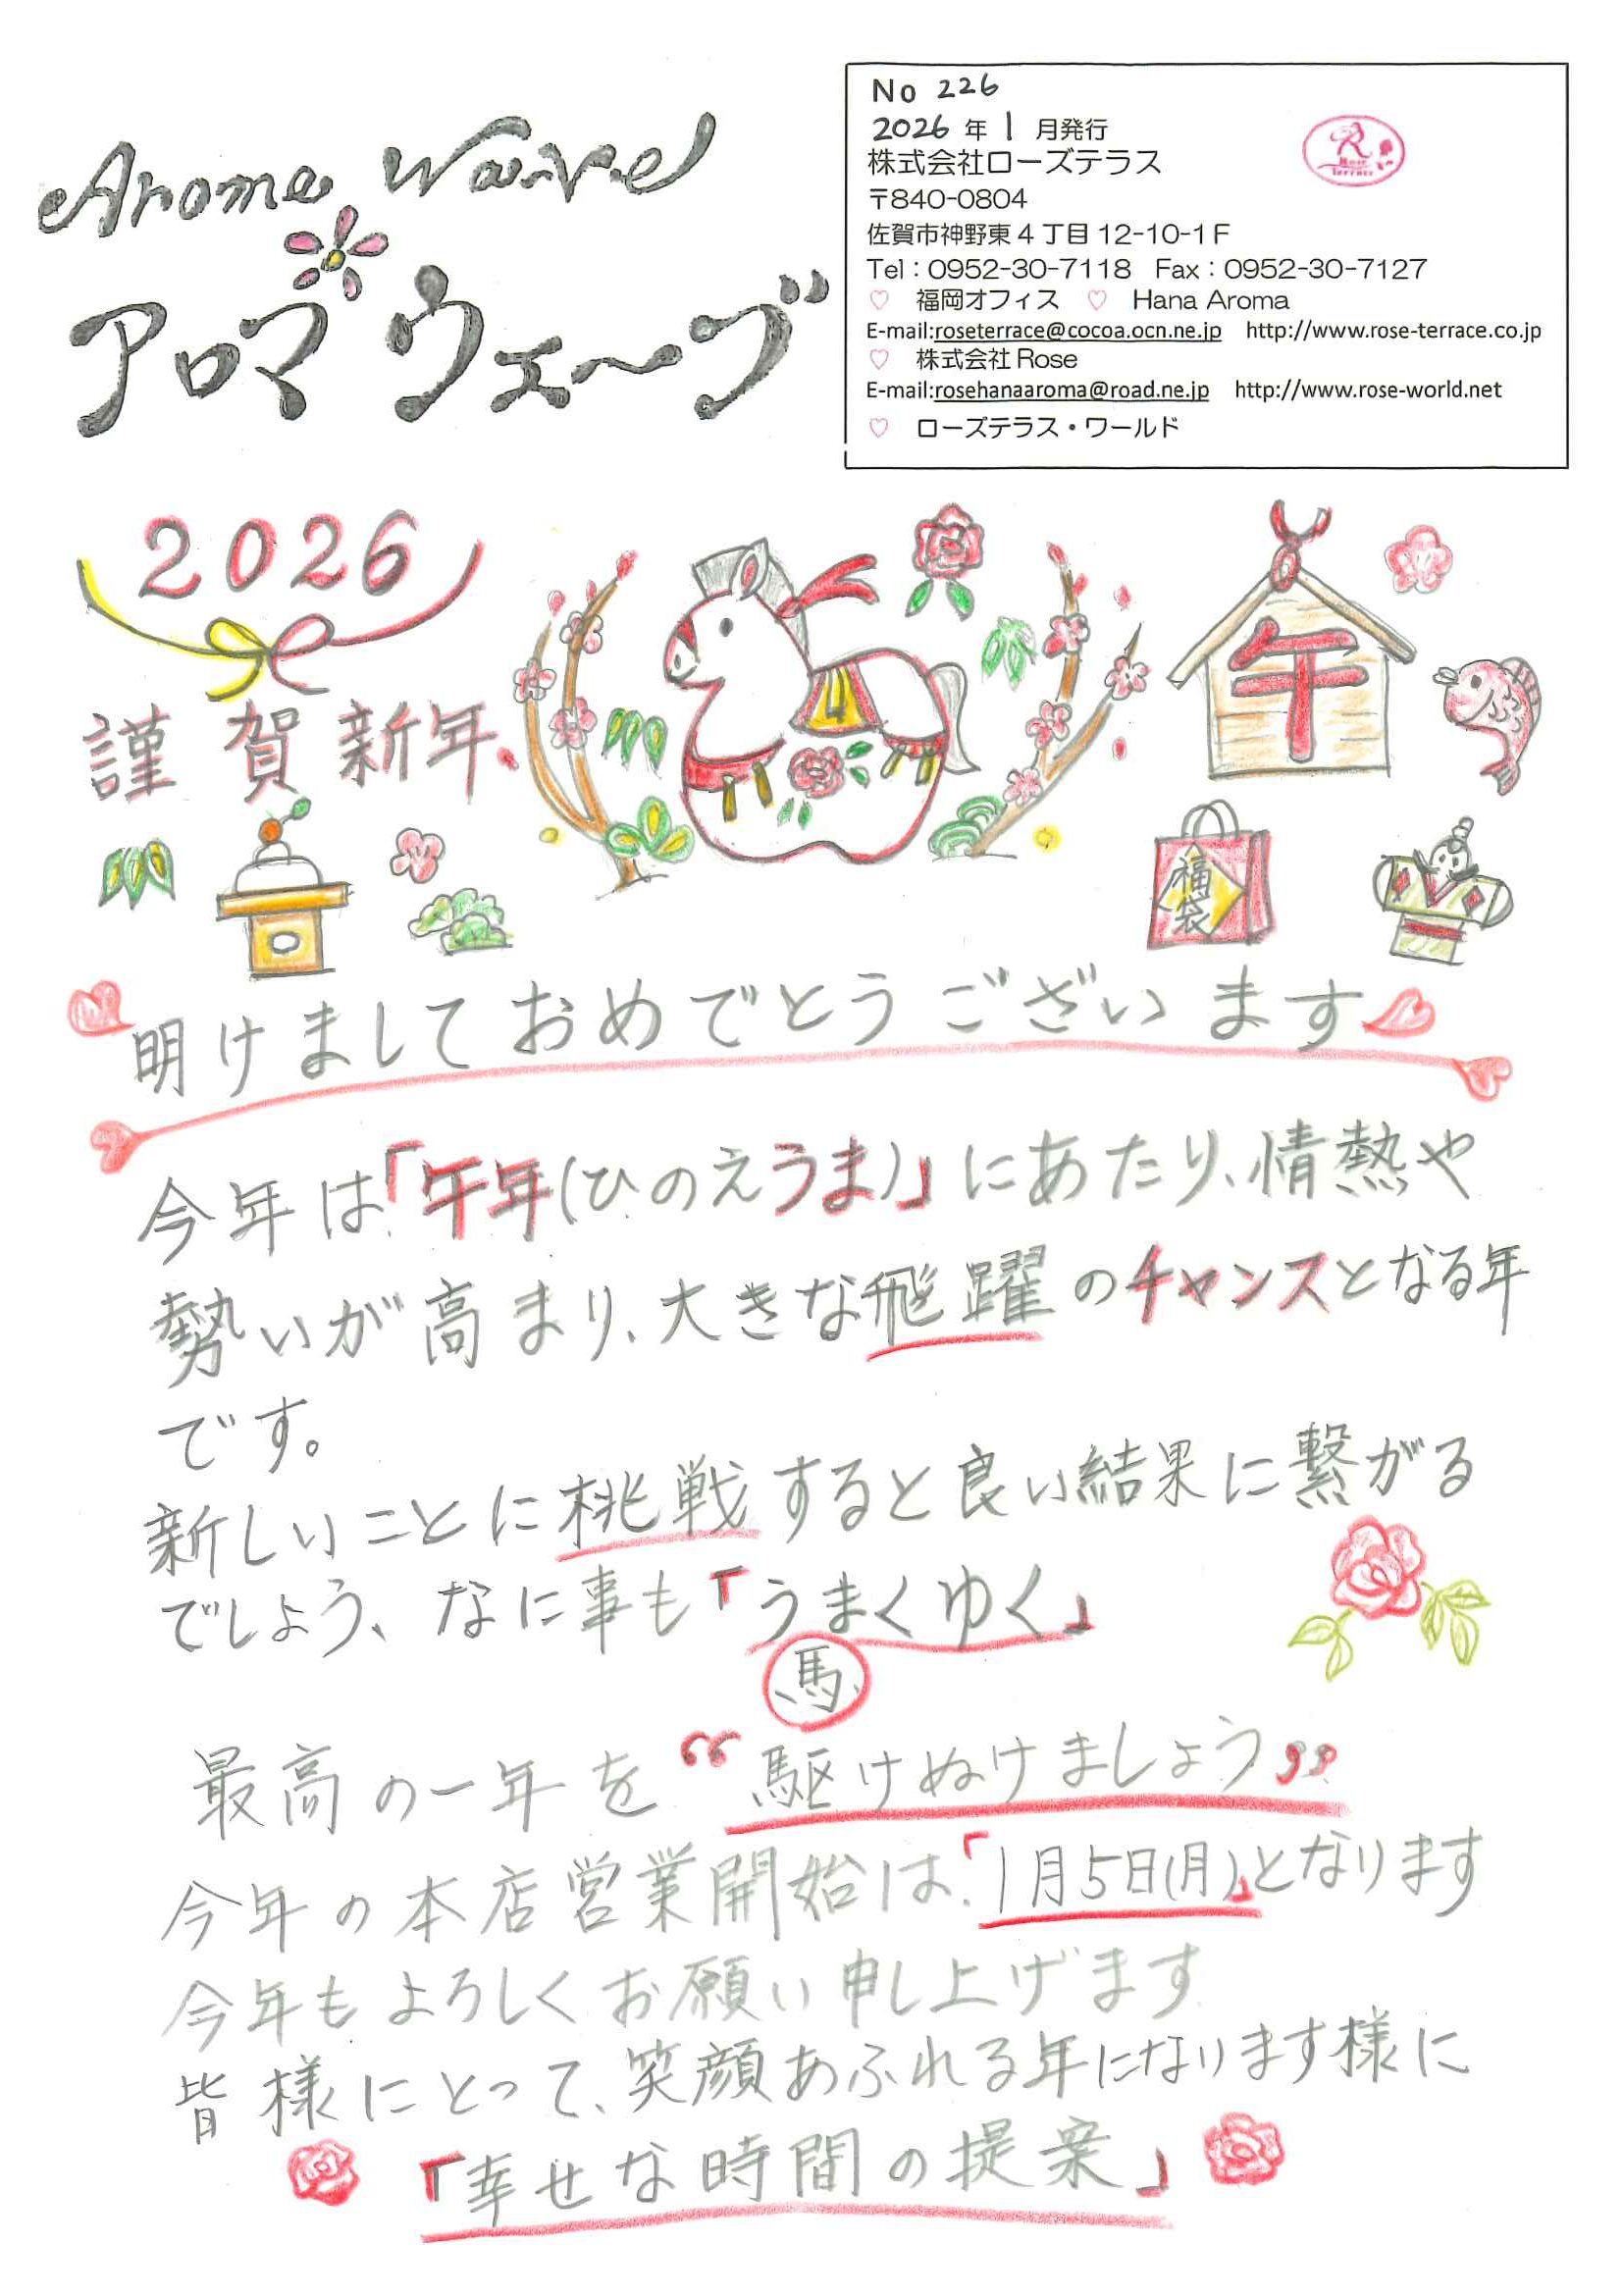 Aroma Wave
アロマウェーブ
No 226
2026 年 1 月発行
株式会社ローズテラス
〒840-0804
佐賀市神野東4丁目12-10-1F
Tel：0952-30-7118 Fax：0952-30-7127
♡ 福岡オフィス ♡ Hana Aroma
E-mail:roseterrace@cocoa.ocn.ne.jp http://www.rose-terrace.co.jp
♡ 株式会社Rose
E-mail:rosehanaaroma@road.ne.jp http://www.rose-world.net
♡ ローズテラス・ワールド
R
Rose
Terrace
2026
謹賀新年
午
福袋
明けましておめでとうございます
今年は「午年(ひのえうま)」にあたり、情熱や
勢いが高まり、大きな飛躍のチャンスとなる年
です。
新しいことに挑戦すると良い結果に繋がる
でしょう、なに事も「うまくゆく」
馬
最高の一年を“駆けぬけましょう”
今年の本店営業開始は、「1月5日(月)」となります
今年もよろしくお願い申し上げます
皆様にとって、笑顔あふれる年になります様に
「幸せな時間の提案」